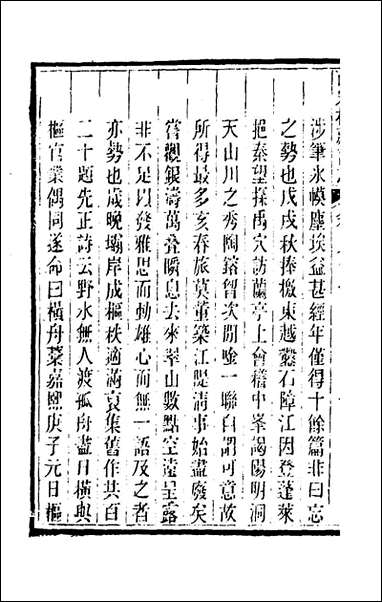 涉筆永幙塵埃益甚經年僅得十餘篇非曰忘
之勢也戊戌秋捧檄東越鑿石障江因登蓬萊
挹秦望探禹穴訪蘭亭上會稽中峯謁陽明洞
天山川之秀陶鎔智次閒唫一聯自謂可意故
所得最多亥春旅莫董築江隄淸事始盡廢矣
嘗觀銀濤萬疊瞬息去來翠山數點空遠呈露
非不足以發雅思而動雄心而無一語及之者
亦勢也歲晚壩岸成樞秩適滿裒集舊作共百
二十題先正詩云野水無人渡孤舟盡日橫與
樞官業偶同遂命曰橫舟藁嘉熙庚子元日樞